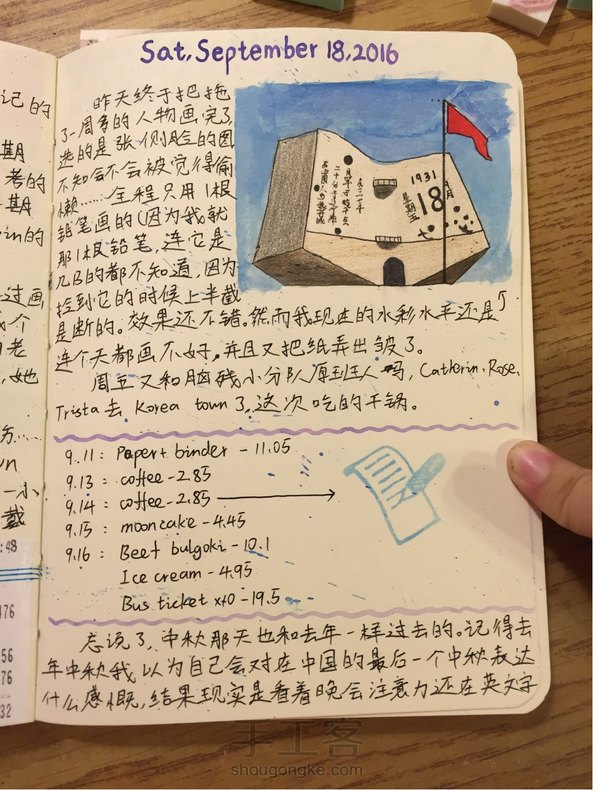 Sat, September 18, 2016
昨天终于把拖
了一周多的人物画完了,
选的是张侧脸的图
不知会不会被觉得偷
懒……全程只用1根
铅笔画的(因为我就
那1根铅笔,连它是
几B的都不知道,因为
捡到它的时候上半截
是断的。效果还不错。然而我现在的水彩水平还是
连个天都画不好,并且又把纸弄出皱了。
周五又和脑残小分队原班人吗, Catherin, Rose,
Trista 去 Korea town 了,这次吃的干锅。
1931
18
月
星期五
9.11: Paper + binder - 11.05
9.13: coffee - 2.85
9.14: coffee - 2.85
9.15: mooncake - 4.45
9.16: Beef bulgoki - 10.1
Ice cream - 4.95
Bus ticket x10 - 19.5
忘说了,中秋那天也和去年一样过去的。记得去
年中秋我以为自己会对在中国的最后一个中秋表达
什么感慨,结果现实是看着晚会注意力还在英文字
记的
期
考的
期
in的
过画
个
老
,她
一小
戴
:48
476
56
76
32
手工客
shougongke.com